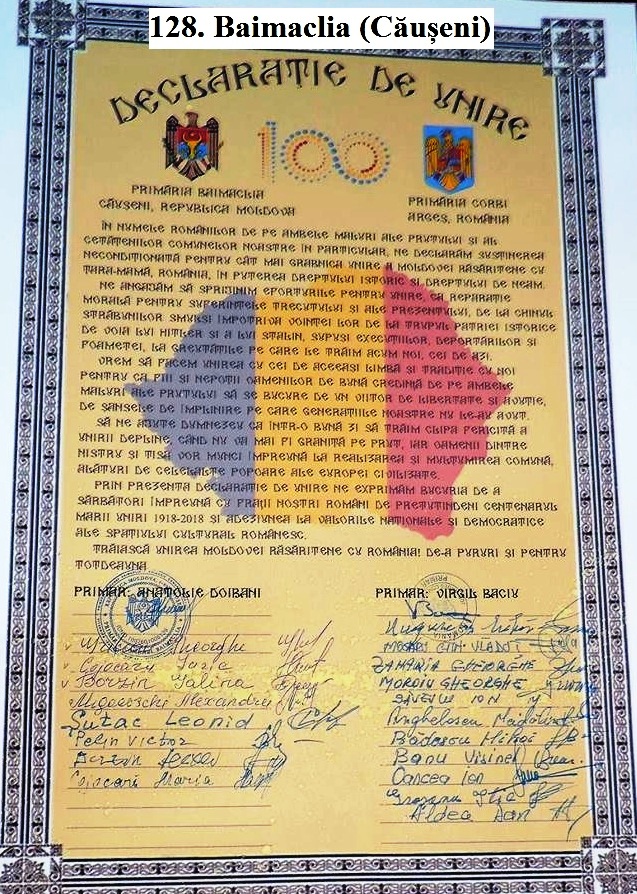 128. Baimaclia (Căușeni)
DECLARAȚIE DE UNIRE
100
PRIMĂRIA BAIMACLIA
CĂUȘENI, REPUBLICA MOLDOVA
PRIMĂRIA CORBI
ARGEȘ, ROMÂNIA
ÎN NUMELE ROMÂNILOR DE PE AMBELE MALURI ALE PRUTULUI ȘI AL
CETĂȚENILOR COMUNELOR NOASTRE ÎN PARTICULAR, NE DECLARĂM SUSȚINEREA
NECONDIȚIONATĂ PENTRU CÂT MAI GRABNICA UNIRE A MOLDOVEI RĂSĂRITENE CU
ȚARA-MAMĂ, ROMÂNIA, ÎN PUTEREA DREPTULUI ISTORIC ȘI DREPTULUI DE NEAM.
NE ANGAJĂM SĂ SPRIJINIM EFORTURILE PENTRU UNIRE, CA REPARAȚIE
MORALĂ PENTRU SUFERINȚELE TRECUTULUI ȘI ALE PREZENTULUI, DE LA CHINUL
STRĂBUNILOR SMULȘI ÎMPOTRIVA VOINȚEI LOR DE LA TRUPUL PATRIEI ISTORICE
DE VOIA LUI HITLER ȘI A LUI STALIN, SUPUȘI EXECUȚIILOR, DEPORTĂRILOR ȘI
FOAMETEI, LA GREUTĂȚILE PE CARE LE TRĂIM ACUM NOI, CEI DE AZI.
VREM SĂ FACEM UNIREA CU CEI DE ACEEAȘI LIMBĂ ȘI TRADIȚIE CU NOI
PENTRU CA FIII ȘI NEPOȚII OAMENILOR DE BUNĂ CREDINȚĂ DE PE AMBELE
MALURI ALE PRUTULUI SĂ SE BUCURE DE UN VIITOR DE LIBERTATE ȘI AVUȚIE,
DE ȘANSELE DE ÎMPLINIRE PE CARE GENERAȚIILE NOASTRE NU LE-AU AVUT.
SĂ NE AJUTE DUMNEZEU CA ÎNTR-O BUNĂ ZI SĂ TRĂIM CLIPA FERICITĂ A
UNIRII DEPLINE, CÂND NU VA MAI FI GRANIȚĂ PE PRUT, IAR OAMENII DINTRE
NISTRU ȘI TISA VOR MUNCI ÎMPREUNĂ LA REALIZAREA ȘI MULȚUMIREA COMUNĂ,
ALĂTURI DE CELELALTE POPOARE ALE EUROPEI CIVILIZATE.
PRIN PREZENTA DECLARAȚIE DE UNIRE NE EXPRIMĂM BUCURIA DE A
SĂRBĂTORI ÎMPREUNĂ CU FRAȚII NOȘTRI ROMÂNI DE PRETUTINDENI CENTENARUL
MARII UNIRI 1918-2018 ȘI ADEZIUNEA LA VALORILE NAȚIONALE ȘI DEMOCRATICE
ALE SPAȚIULUI CULTURAL ROMÂNESC.
TRĂIASCĂ UNIREA MOLDOVEI RĂSĂRITENE CU ROMÂNIA! DE-A PURURI ȘI PENTRU
TOTDEAUNA
PRIMAR: ANATOLIE DOIBANI
PRIMAR: VIRGIL BACIU
Gheorghe
Borzin Galina
Alexandru
Șutac Leonid
Pelin Victor
Cojocari Maria
MOȘOI GH. VLĂDUȚ
ZAMARIA GHEORGHE
MOROIU GHEORGHE
SAVELIU ION
Bădescu Mihai
Banu Visinel
Oancea Ion
Ilie
Aldea Dan